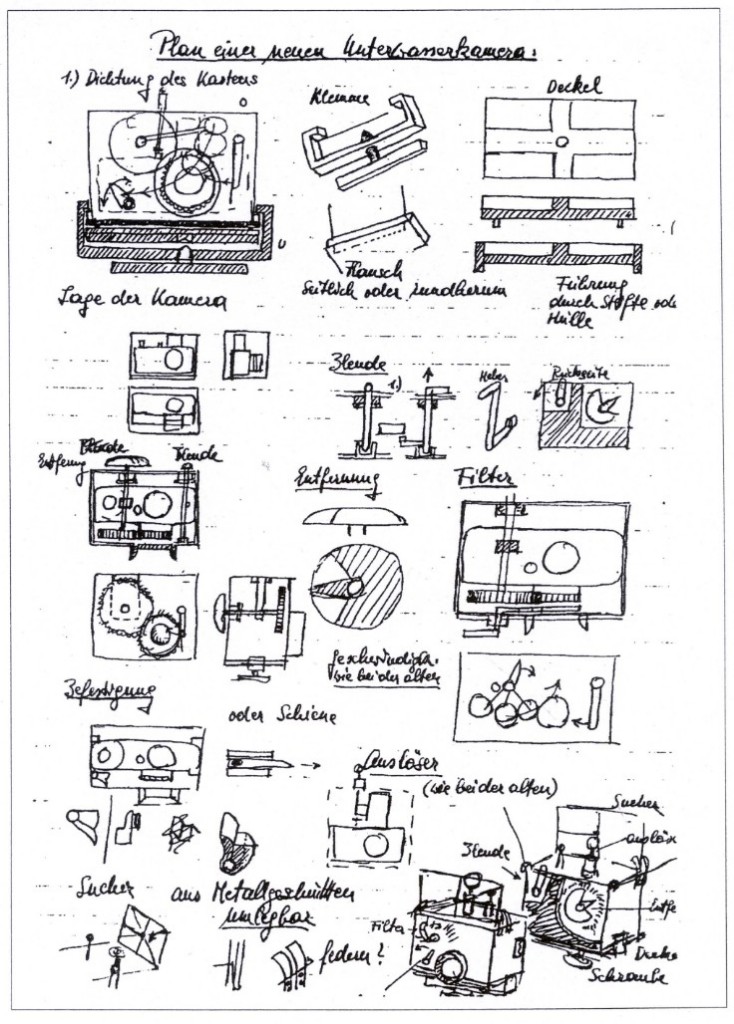 Plan einer neuen Unterwasserkamera:
1.) Dichtung des Kastens
Klemme
Deckel
Flausch
seitlich oder rundherum
Führung
durch Stifte ode
Hülle
Lage der Kamera
Blende
1.)
Heber
Rückseite
Entfernung
Blende
Blende
Entfernung
Filter
Geschwindigk.
wie bei der alten
Befestigung
oder Schiene
Auslöser
(wie bei der alten)
Sucher
auslös
Blende
Entfe
Filter
Schraube
Sucher
aus Metallgeschnitten
umlegbar
federn?